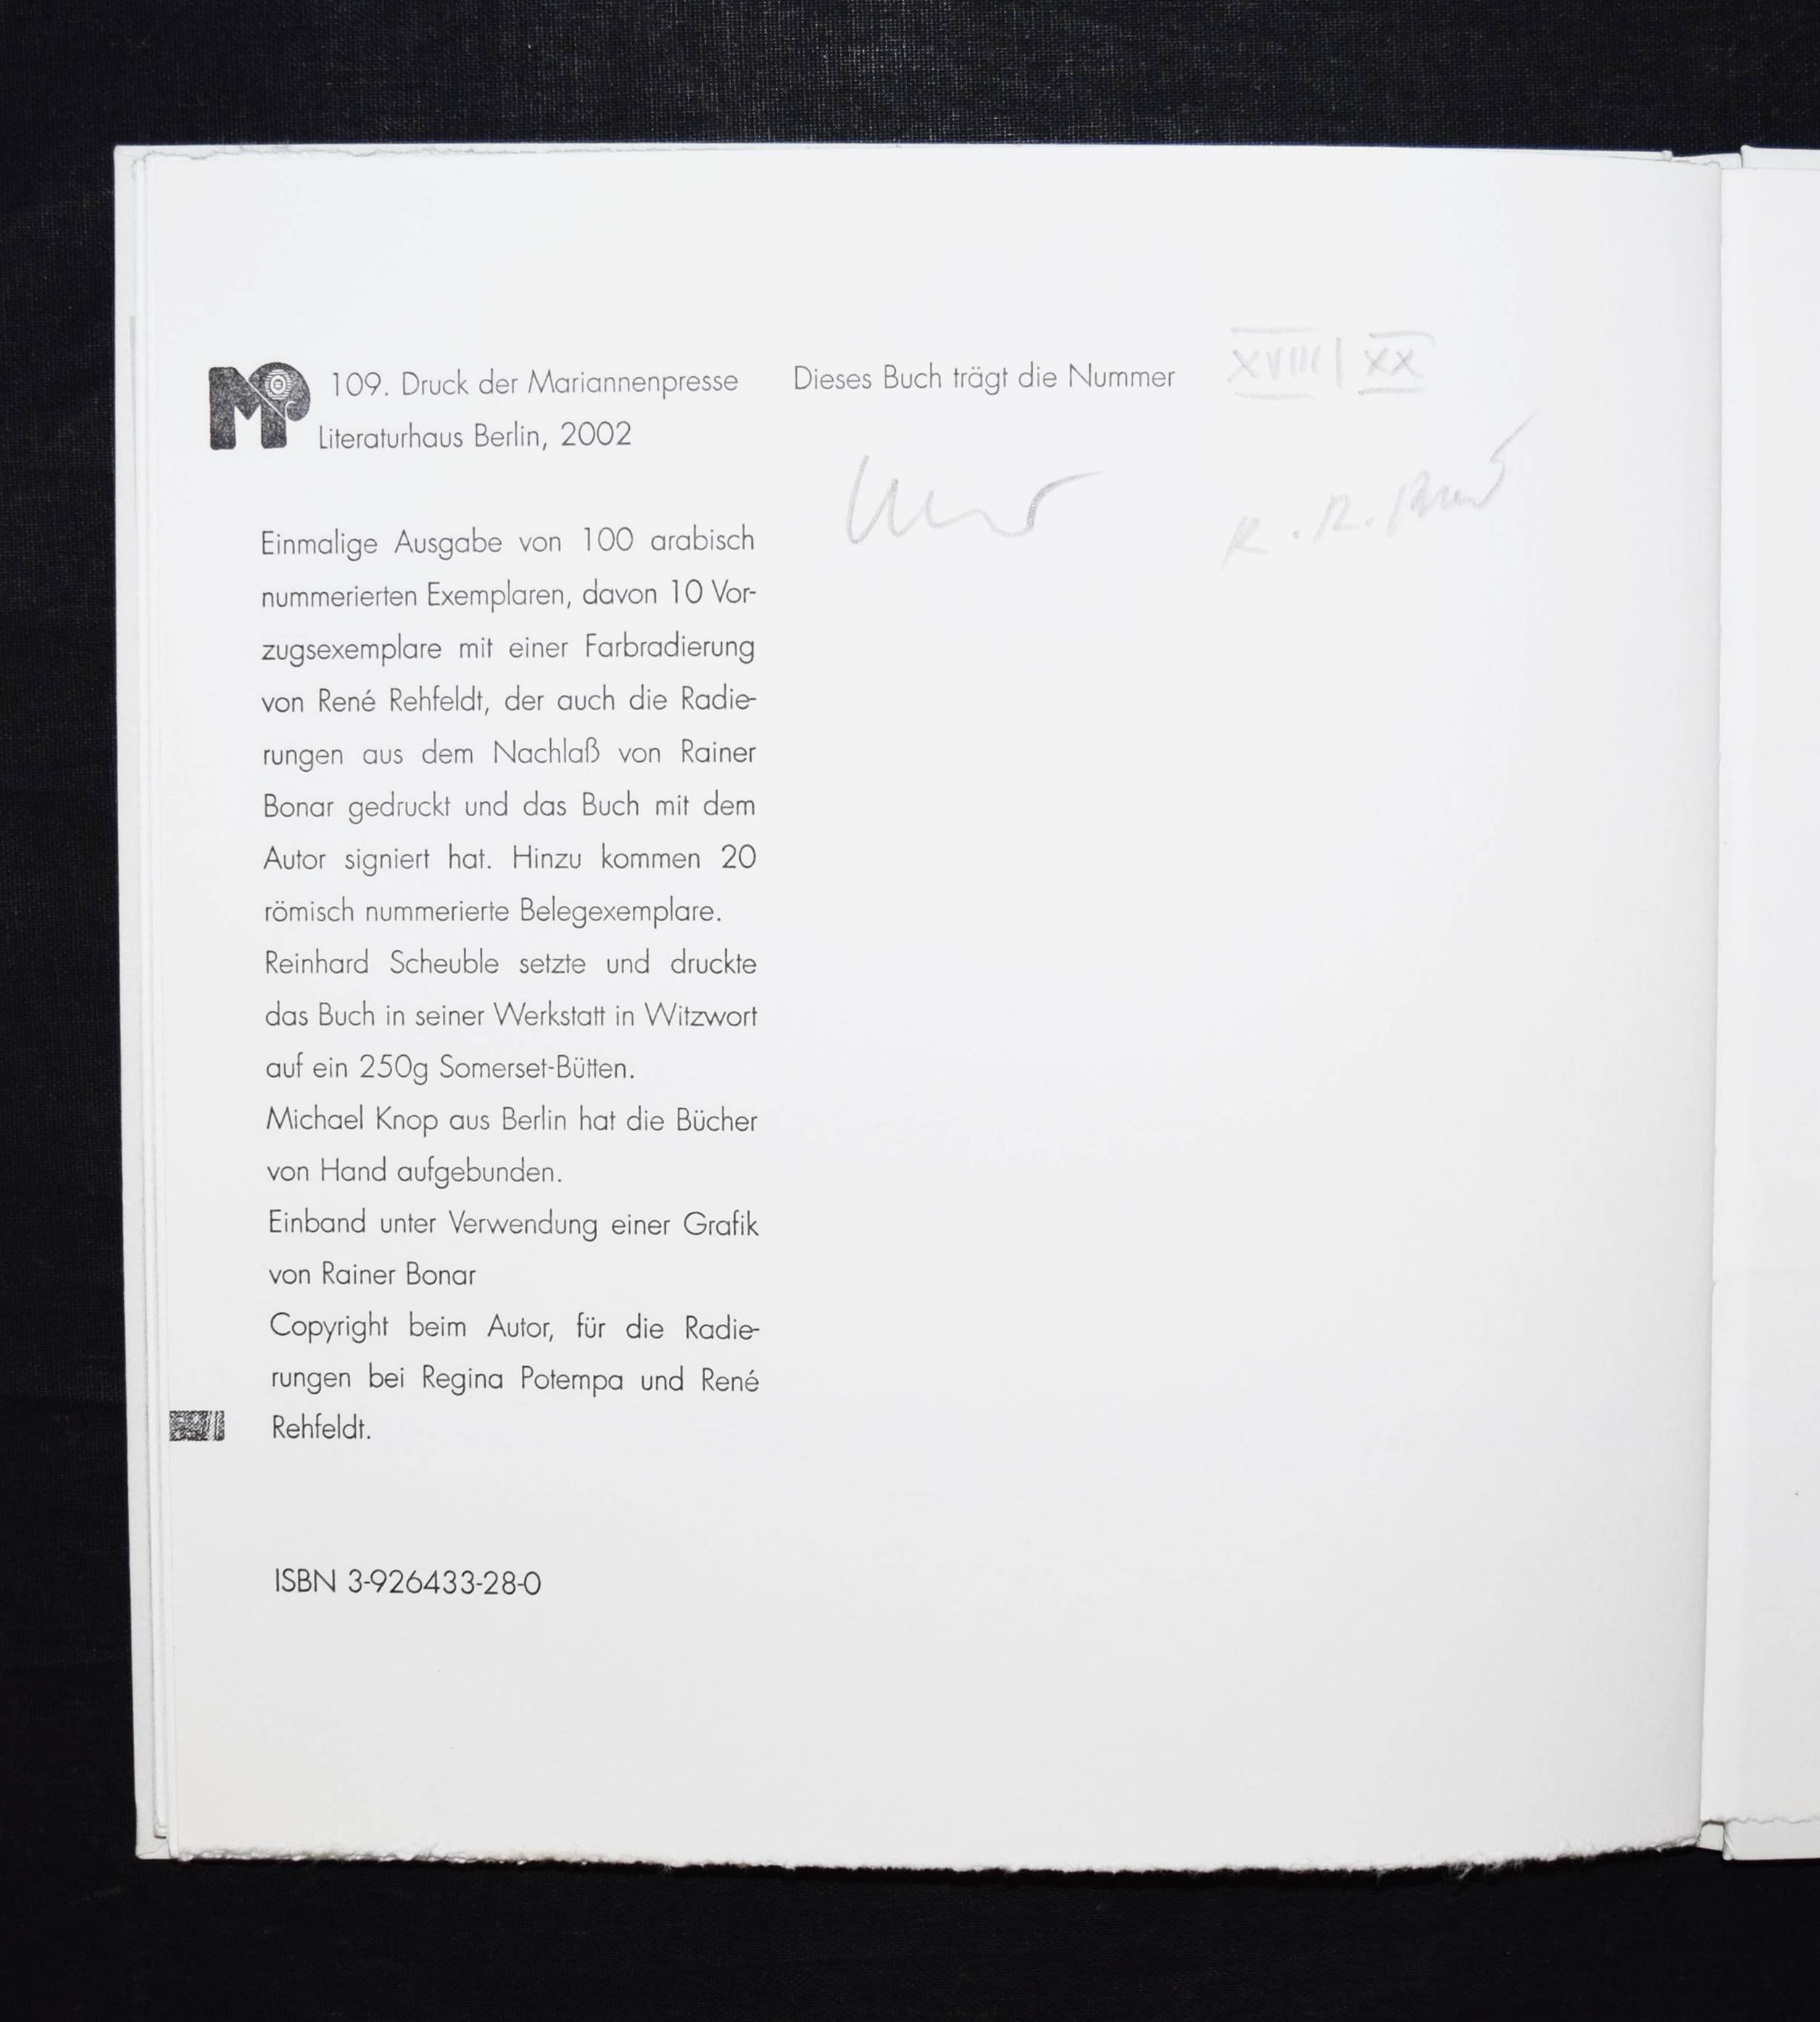 MP
109. Druck der Mariannenpresse
Literaturhaus Berlin, 2002
Einmalige Ausgabe von 100 arabisch
nummerierten Exemplaren, davon 10 Vor-
zugsexemplare mit einer Farbradierung
von René Rehfeldt, der auch die Radie-
rungen aus dem Nachlaß von Rainer
Bonar gedruckt und das Buch mit dem
Autor signiert hat. Hinzu kommen 20
römisch nummerierte Belegexemplare.
Reinhard Scheuble setzte und druckte
das Buch in seiner Werkstatt in Witzwort
auf ein 250g Somerset-Bütten.
Michael Knop aus Berlin hat die Bücher
von Hand aufgebunden.
Einband unter Verwendung einer Grafik
von Rainer Bonar
Copyright beim Autor, für die Radie-
rungen bei Regina Potempa und René
Rehfeldt.
ISBN 3-926433-28-0
Dieses Buch trägt die Nummer XVIII | XX